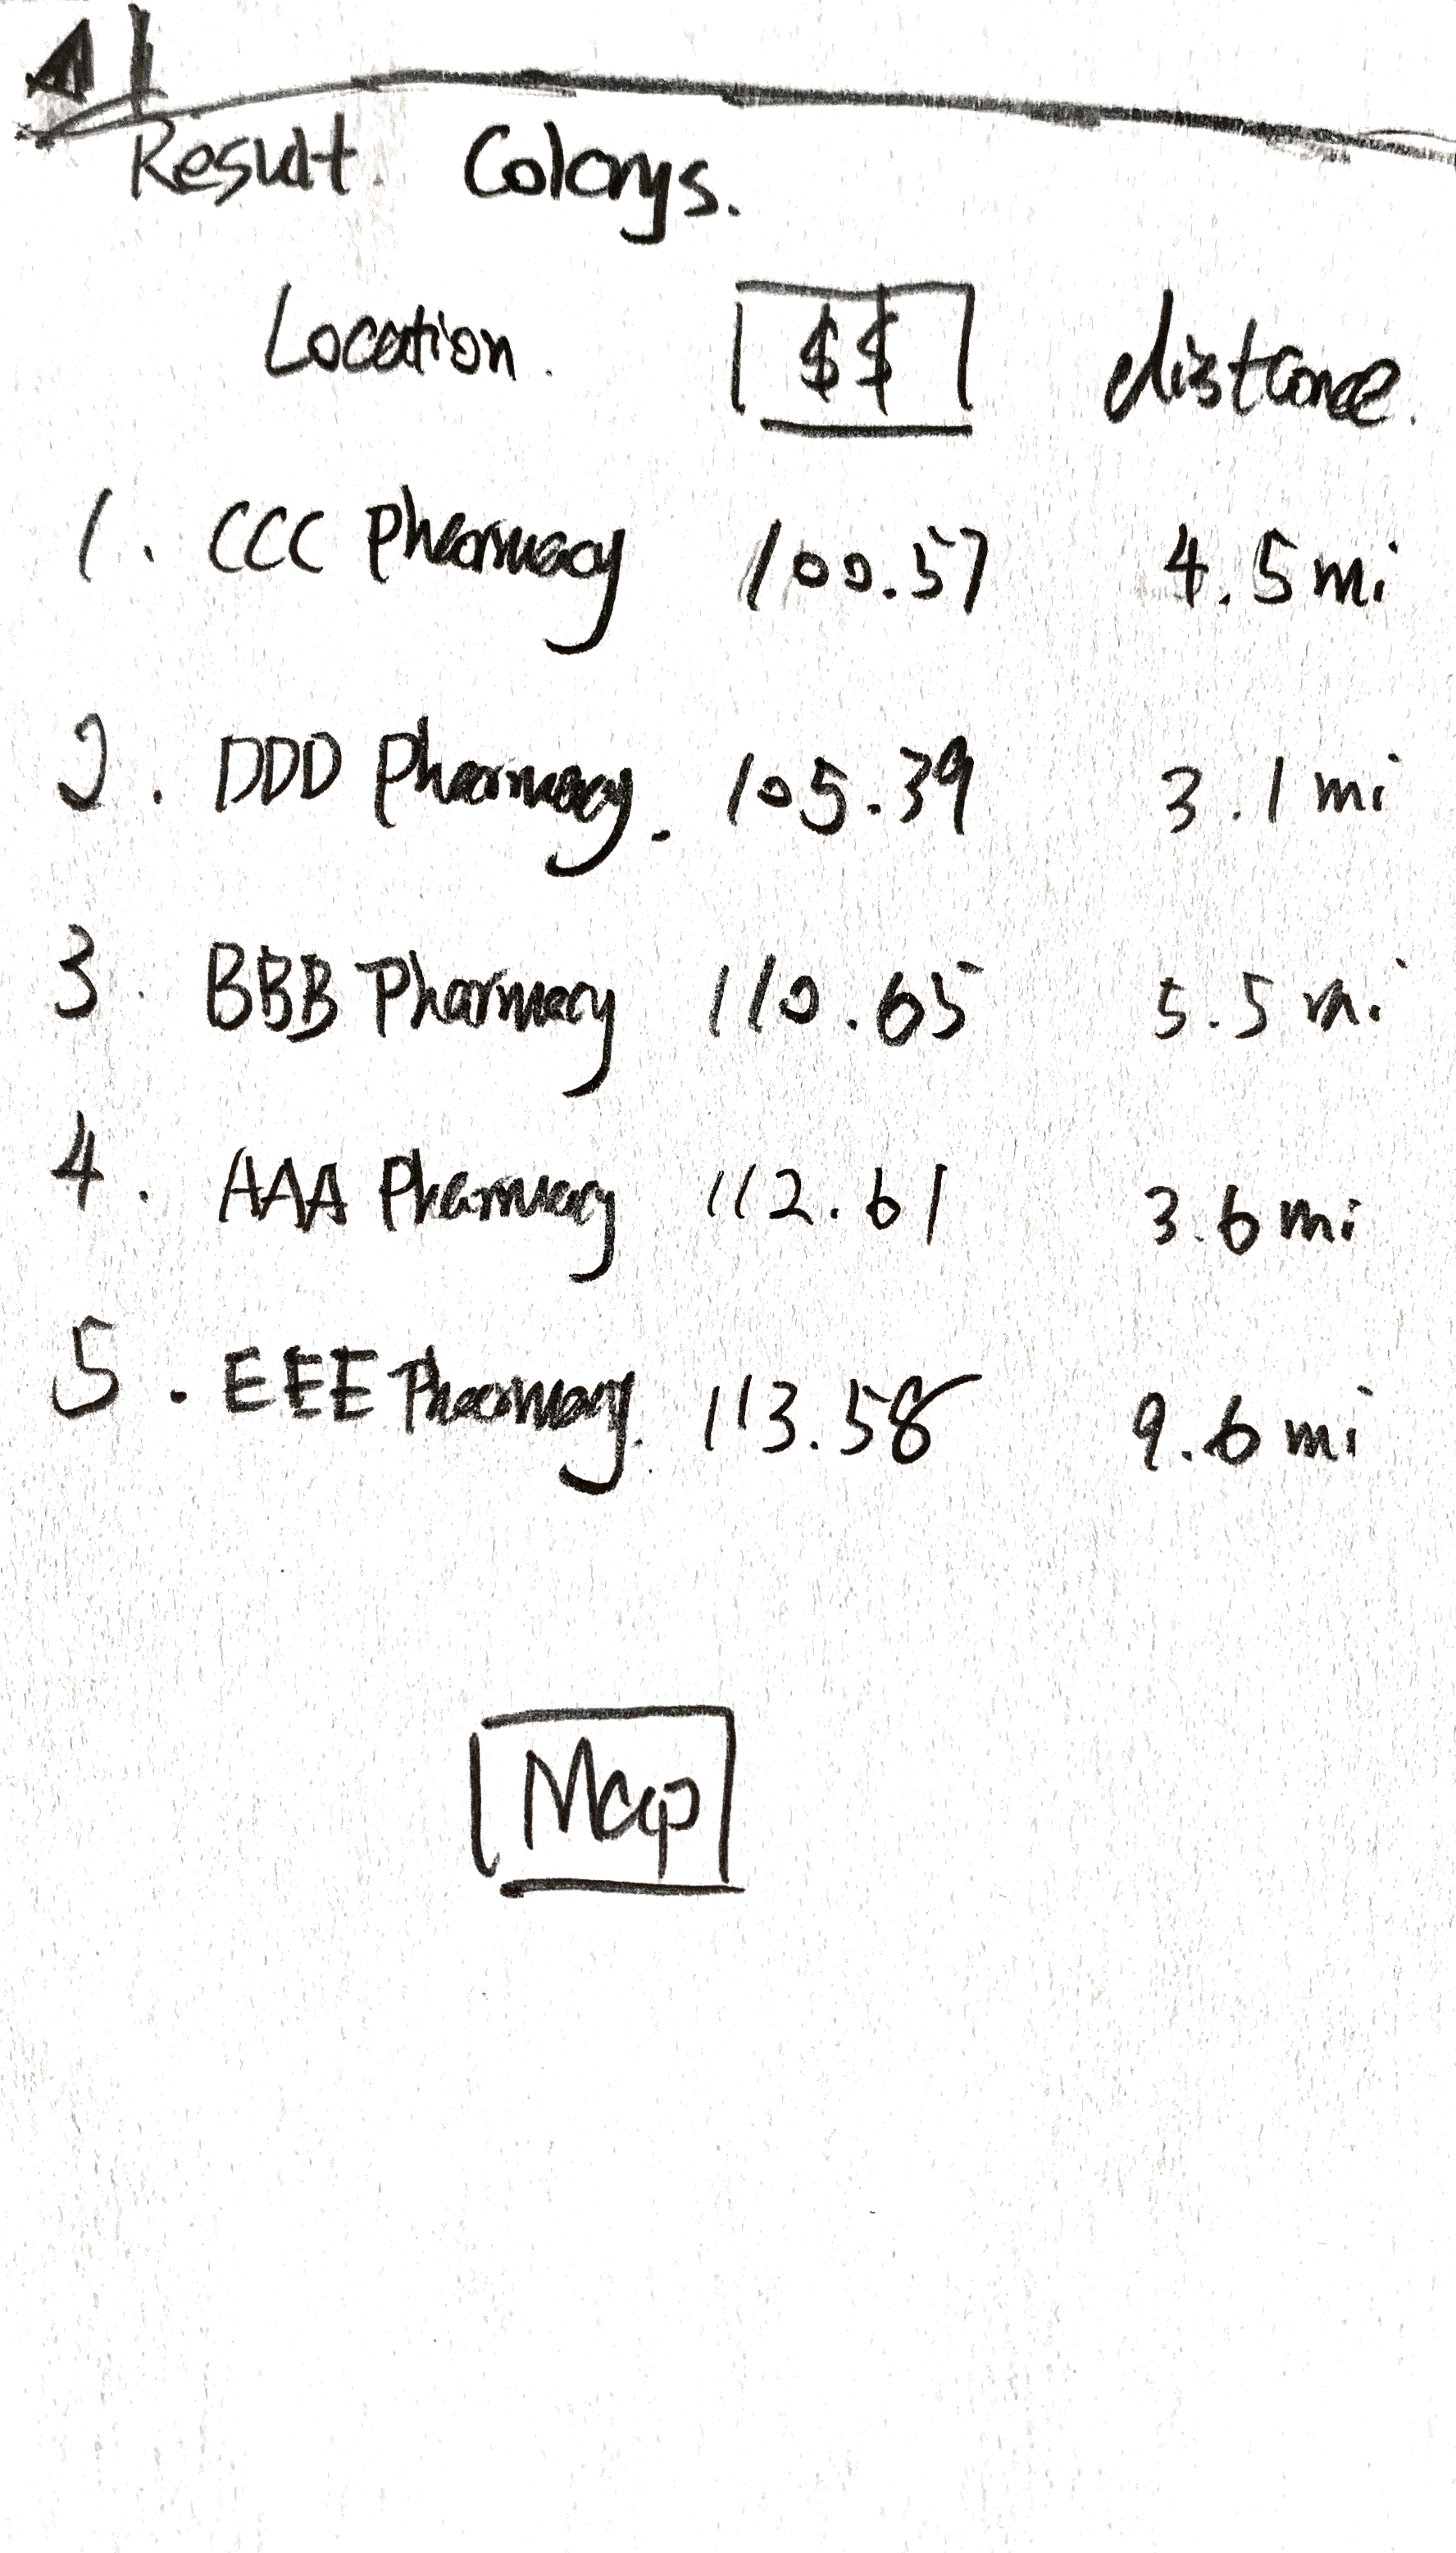 A1
Result. Colonys.
Location. $$ distance.
1. CCC Pharmacy 100.57 4.5 mi
2. DDD Pharmacy. 105.39 3.1 mi
3. BBB Pharmacy 110.65 5.5 mi
4. AAA Pharmacy 112.61 3.6 mi
5. EEE Pharmacy. 113.58 9.6 mi
Map